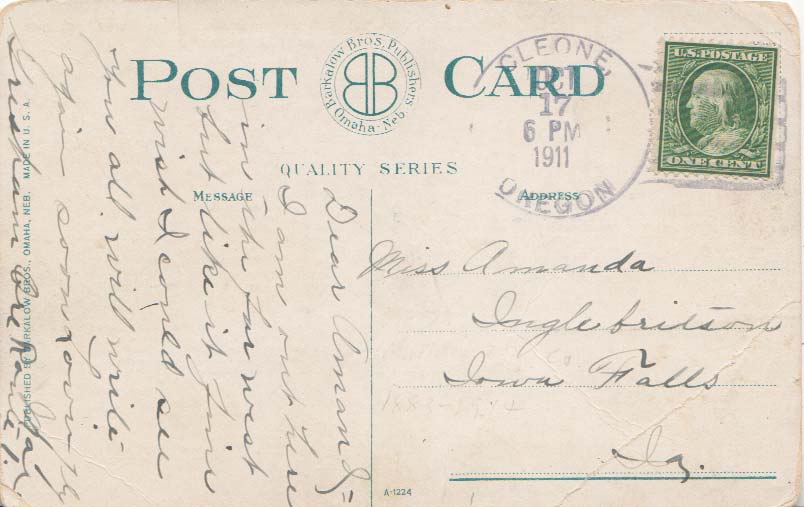 POST CARD
Barkalow Bros. Publishers
Omaha, Neb.
QUALITY SERIES
MESSAGE
ADDRESS
CLEONE,
OCT
17
6 PM
1911
OREGON
U.S. POSTAGE
ONE CENT
Dear Amanda
I am out here
in the far west
but like it fine
wish I could see
you all will write
again soon
Miss Amanda
Inglebritson
Iowa Falls
Ia.
A-1224
PUBLISHED BY BARKALOW BROS., OMAHA, NEB. MADE IN U.S.A.